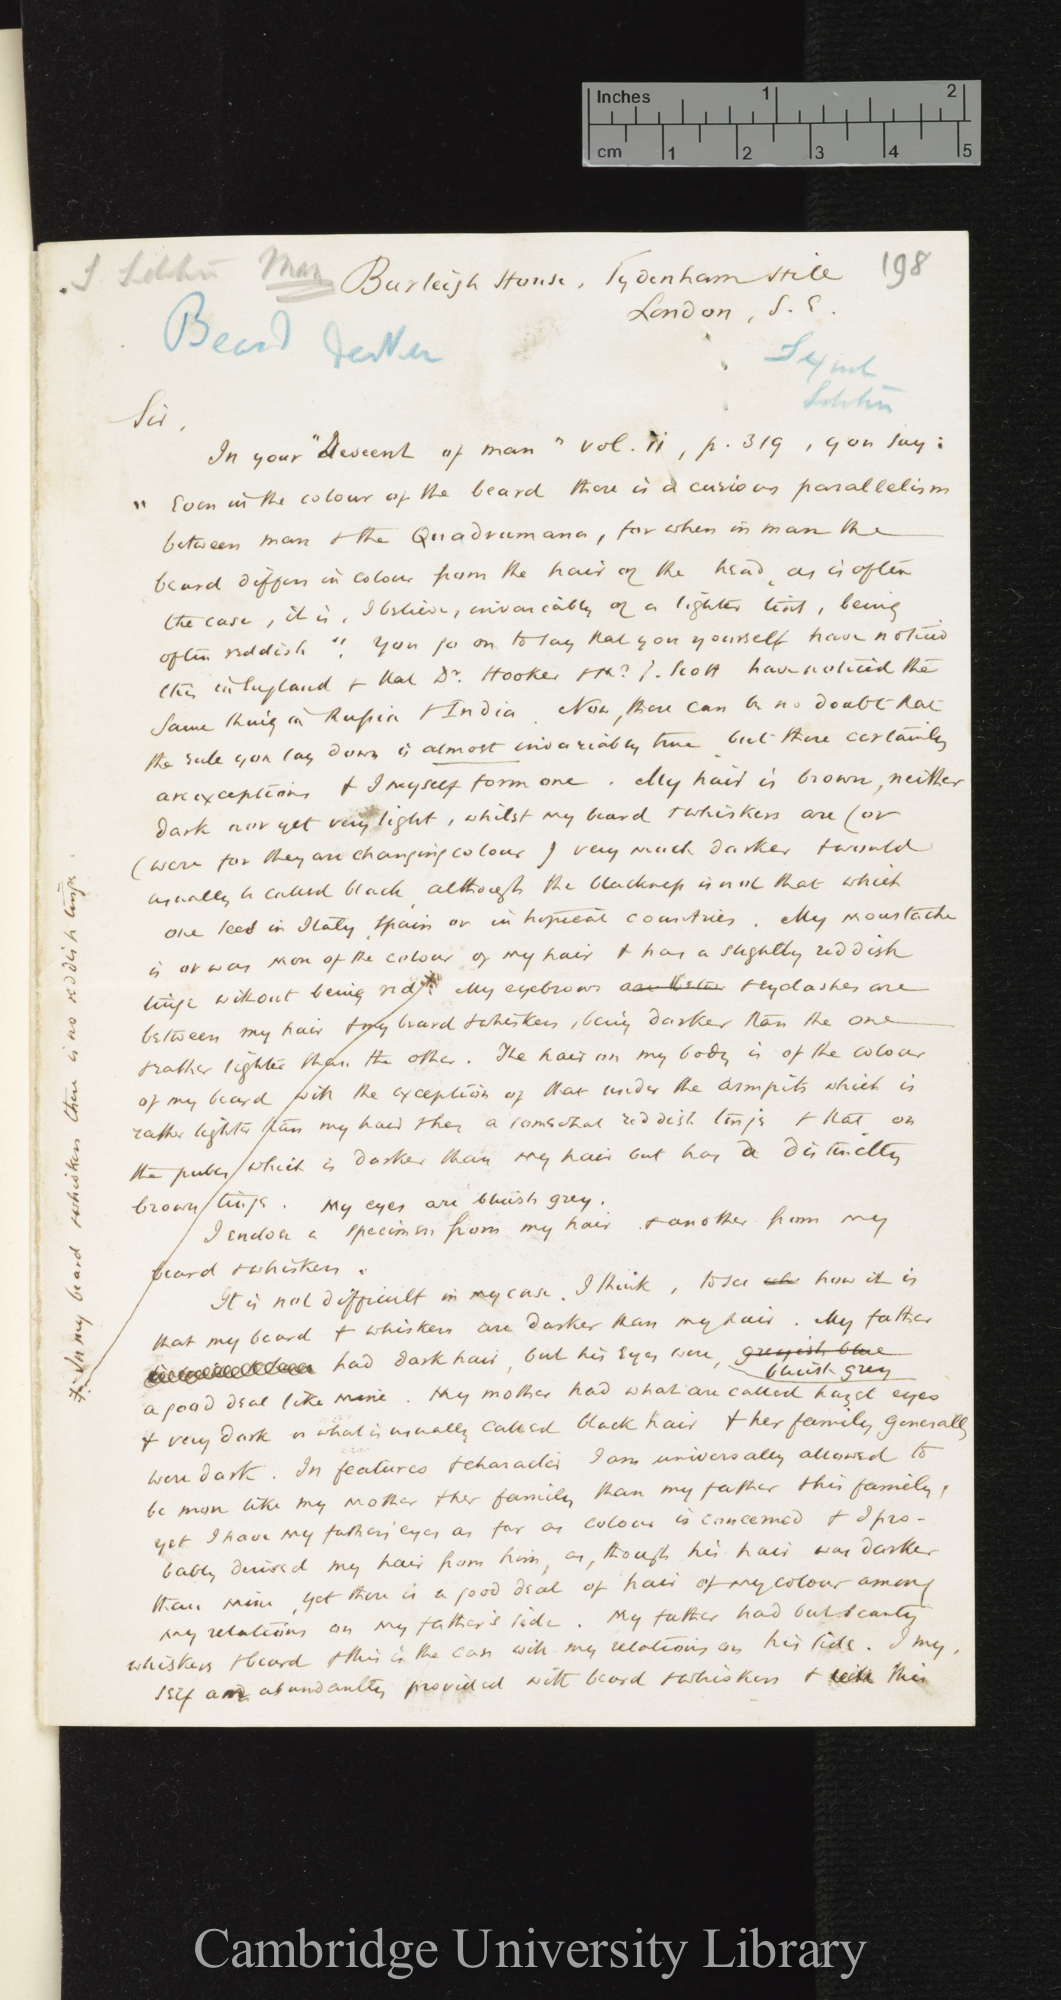 Inches 1 2
cm 1 2 3 4 5
S Selection Man
198
Burleigh House, Sydenham Hill
London, S. E.
Beard darker
Sexual
Selection
Sir,
In your "Descent of man" vol. ii, p. 319, you say:
" Even in the colour of the beard there is a curious parallelism
between man & the Quadrumana, for when in man the
beard differs in colour from the hair of the head, as is often
the case, it is, I believe, invariably of a lighter tint, being
often reddish". You go on to say that you yourself have noticed
this in England & that Dr. Hooker & Mr. J. Scott have noticed the
same thing in Russia & India. Now, there can be no doubt that
the rule you lay down is almost invariably true but there certainly
are exceptions & I myself form one. My hair is brown, neither
dark nor yet very light, whilst my beard & whiskers are (or
(were for they are changing colour) very much darker & would
usually be called black, although the blackness is not that which
one sees in Italy, Spain or in tropical countries. My moustache
is or was more of the colour of my hair & has a slightly reddish
tinge without being red. My eyebrows & eyelashes are
between my hair & my beard & whiskers, being darker than the one
& rather lighter than the other. The hair on my body is of the colour
of my beard with the exception of that under the armpits which is
rather lighter than my hair & has a somewhat reddish tinge & that on
the pubes which is darker than my hair but has a distinctly
brown tinge. My eyes are bluish grey.
I enclose a specimen from my hair & another from my
beard & whiskers.
It is not difficult in my case, I think, to see how it is
that my beard & whiskers are darker than my hair. My father
had dark hair, but his eyes were, greyish blue
bluish grey
a good deal like mine. My mother had what are called hazel eyes
& very dark or what is usually called black hair & her family generally
were dark. In features & character I am universally allowed to
be more like my mother & her family than my father & his family,
yet I have my father's eyes as far as colour is concerned & I pro-
bably derived my hair from him, as, though his hair was darker
than mine, yet there is a good deal of hair of my colour among
my relations on my father's side. My father had but scanty
whiskers & beard & this is the case with my relations on his side. I my-
self am abundantly provided with beard & whiskers & with this
+. In my beard & whiskers there is no reddish tinge.
Cambridge University Library